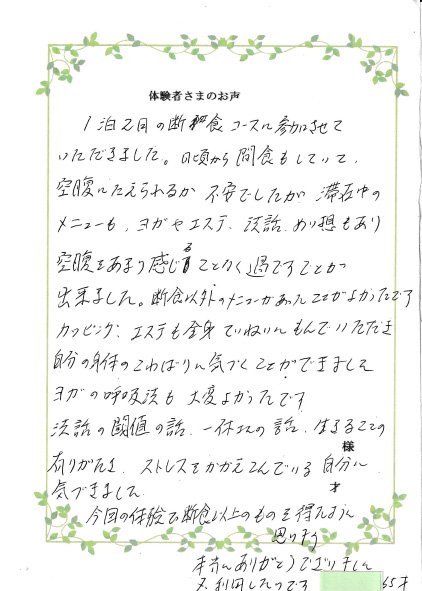 体験者さまのお声
1泊2日の断食コースに参加させて
いただきました。日頃から間食もしていて、
空腹にたえられるか不安でしたが滞在中の
メニューも、ヨガやエステ、法話、めい想もあり
空腹をあまり感じることなく過ごすことが
出来ました。断食以外のメニューがあったことがよかったです
カッピング、エステも全身ていねいにもんでいただき
自分の身体のこわばりに気づくことができました
ヨガの呼吸法も大変よかったです
法話の闘値の話、一休さんの話、生きることの
様
有りがたさ、ストレスをかかえこんでいる自分に
気づきました
才
今回の体験で断食以上のものを得たように
思います
本当にありがとうございました
又利用したいです
55才